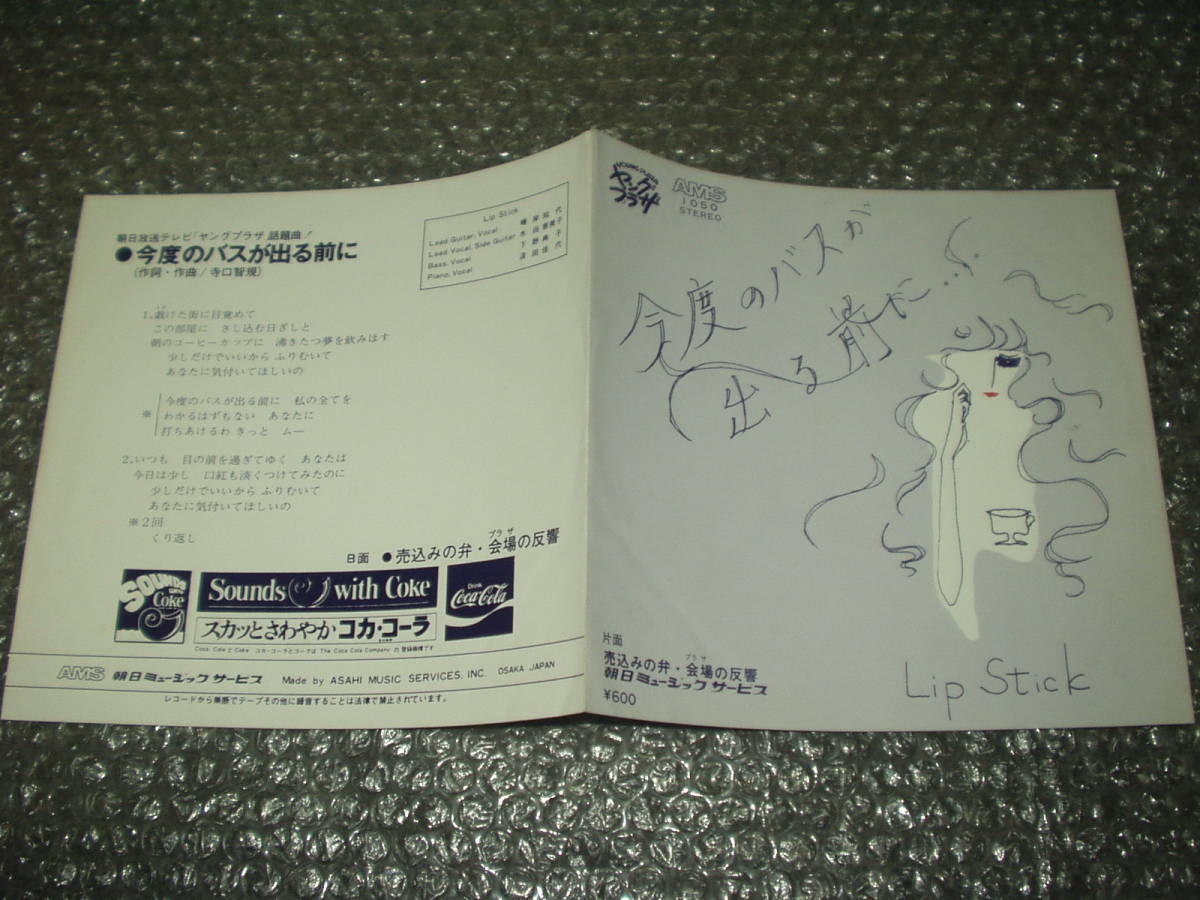 朝日放送テレビ「ヤングプラザ」話題曲!
●今度のバスが出る前に
(作詞・作曲/寺口智規)
Lip Stick
Lead Guitar, Vocal
Lead Vocal, Side Guitar
Bass, Vocal
Piano, Vocal
1、戯けた街に目覚めて
この部屋に さし込む日ざしと
朝のコーヒーカップに 沸きたつ夢を飲みほす
少しだけでいいから ふりむいて
あなたに気付いてほしいの
今度のバスが出る前に 私の全てを
※ わかるはずもない あなたに
打ちあけるわ きっと ムー
2、いつも 目の前を過ぎてゆく あなたは
今日は少し 口紅も淡くつけてみたのに
少しだけでいいから ふりむいて
あなたに気付いてほしいの
※2回
くり返し
プラザ
B面 ●売込みの弁・会場の反響
SOUNDS with Coke
Sounds with Coke
スカッとさわやか コカ・コーラ
Drink
Coca-Cola
Coca Cola と Coke コカ・コーラとコークは The Coca Cola Company の登録商標です
AMS 朝日ミュージックサービス Made by ASAHI MUSIC SERVICES, INC. OSAKA JAPAN
レコードから無断でテープその他に録音することは法律で禁止されています。
ヤング
プラザ
AMS
1050
STEREO
今度のバスが
出る前に・・・
片面
プラザ
売込みの弁・会場の反響
朝日ミュージックサービス
¥600
Lip Stick